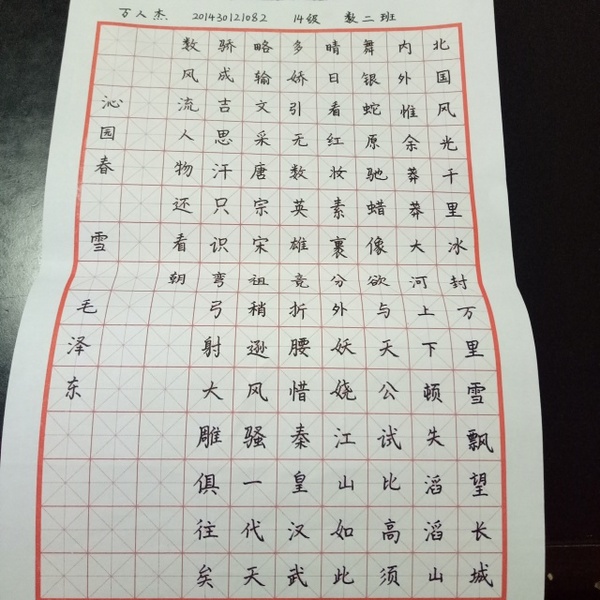 万人杰 201430121082 14级 数二班
北国风光千里冰封万里雪飘望长城
内外惟余莽莽大河上下顿失滔滔山
舞银蛇原驰蜡像欲与天公试比高须
晴日看红妆素裹分外妖娆江山如此
多娇引无数英雄竞折腰惜秦皇汉武
略输文采唐宗宋祖稍逊风骚一代天
骄成吉思汗只识弯弓射大雕俱往矣
数风流人物还看朝
沁园春 雪 毛泽东